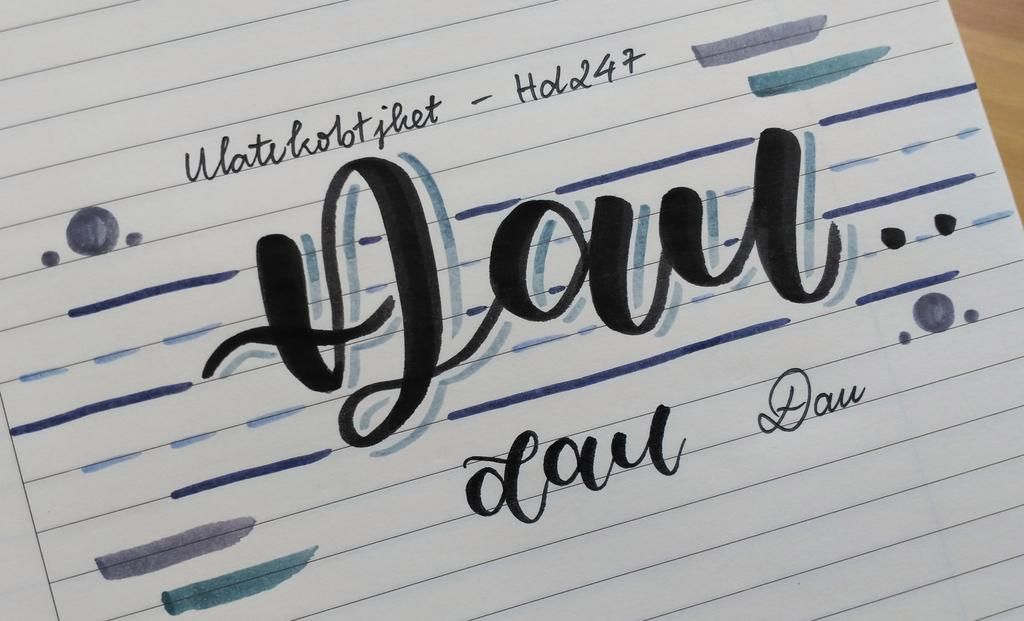 Ulatekobtjhet - Hda247
Đau..
đau Đau